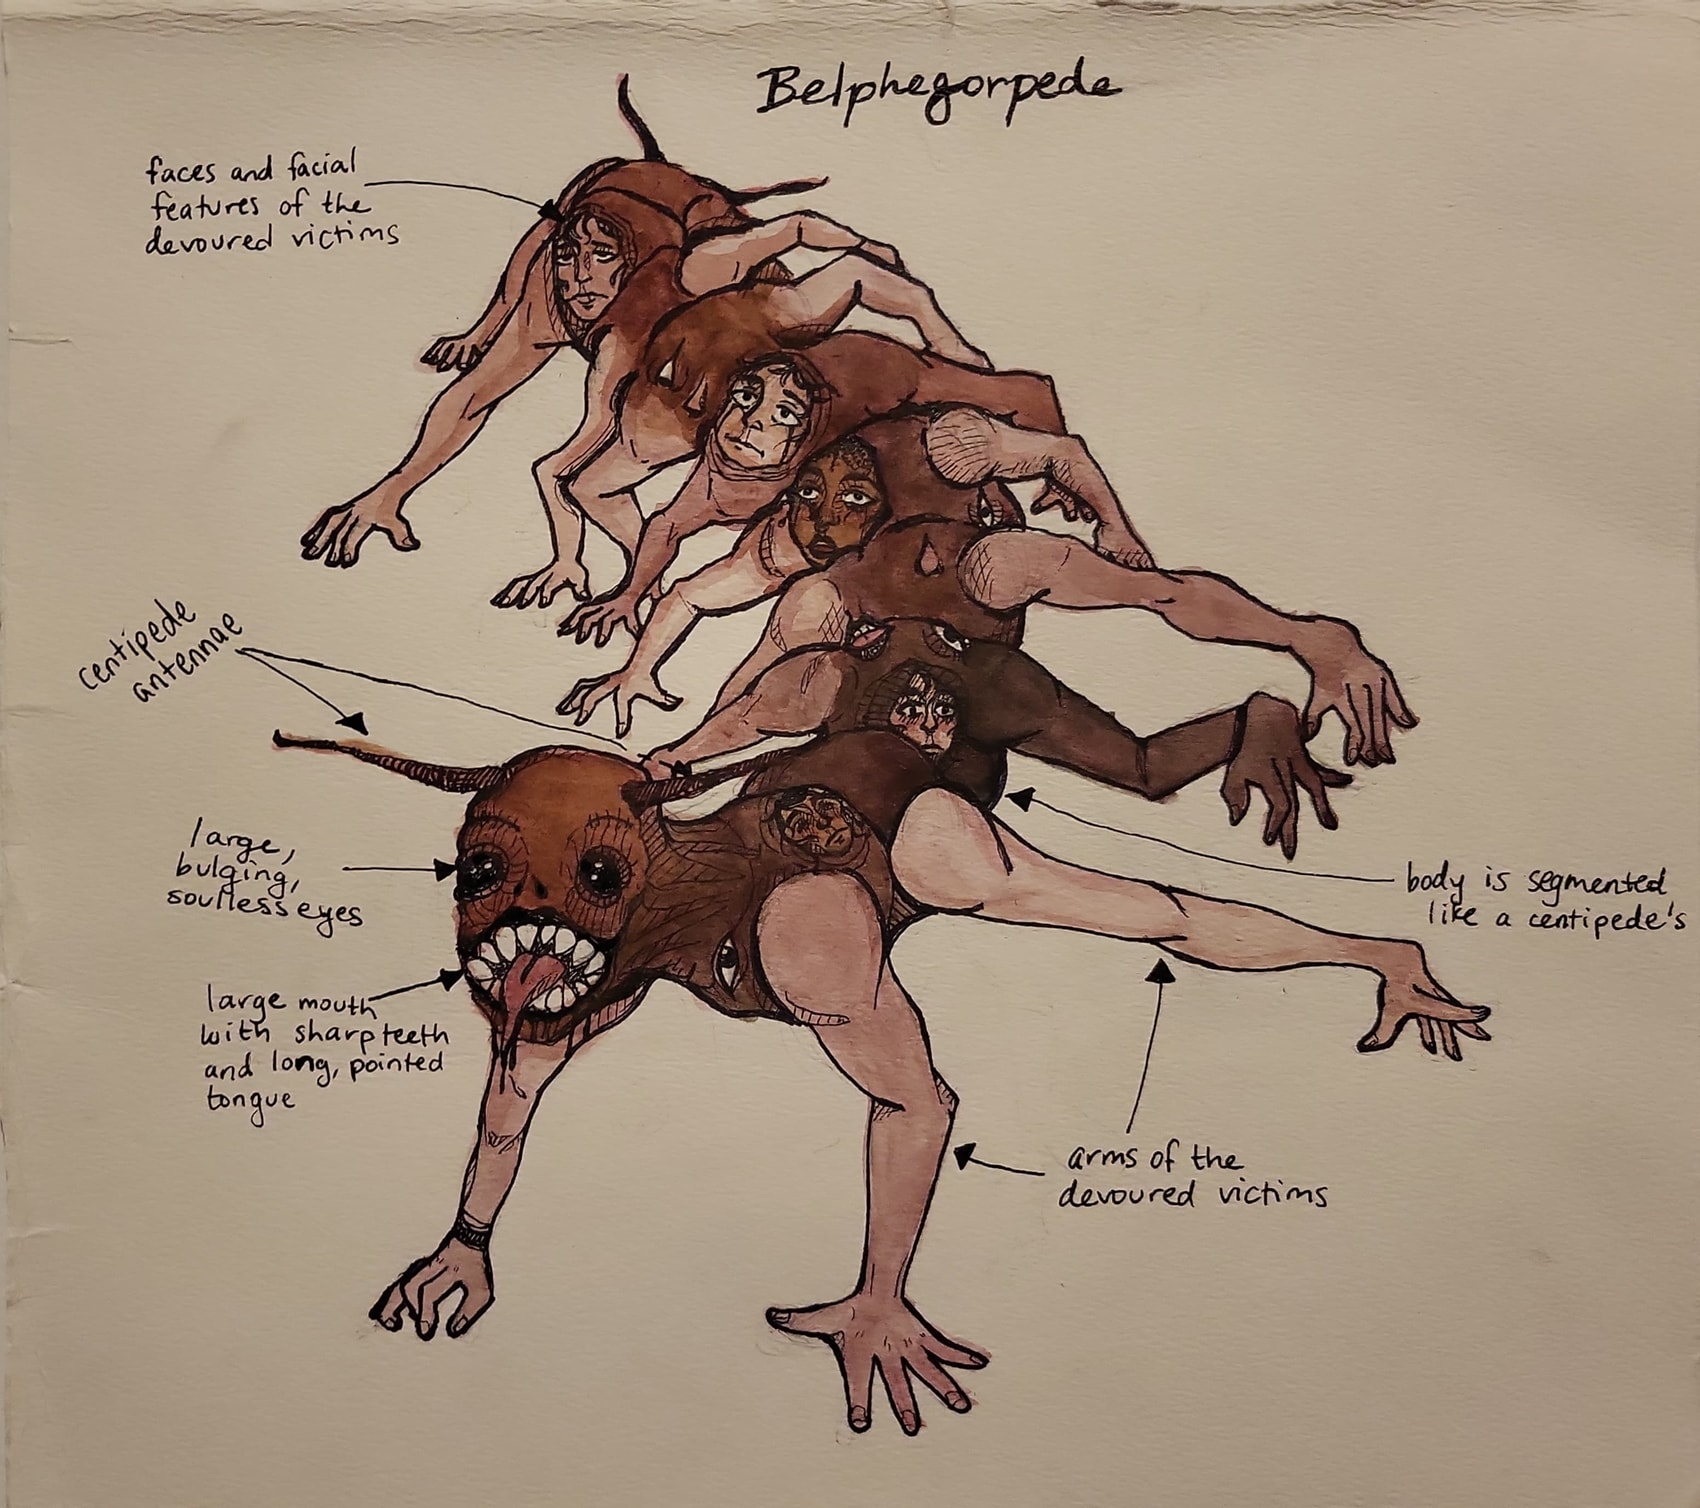 Belphegorpede
faces and facial
features of the
devoured victims
centipede
antennae
large,
bulging,
soulless eyes
large mouth
with sharp teeth
and long, pointed
tongue
body is segmented
like a centipede's
arms of the
devoured victims